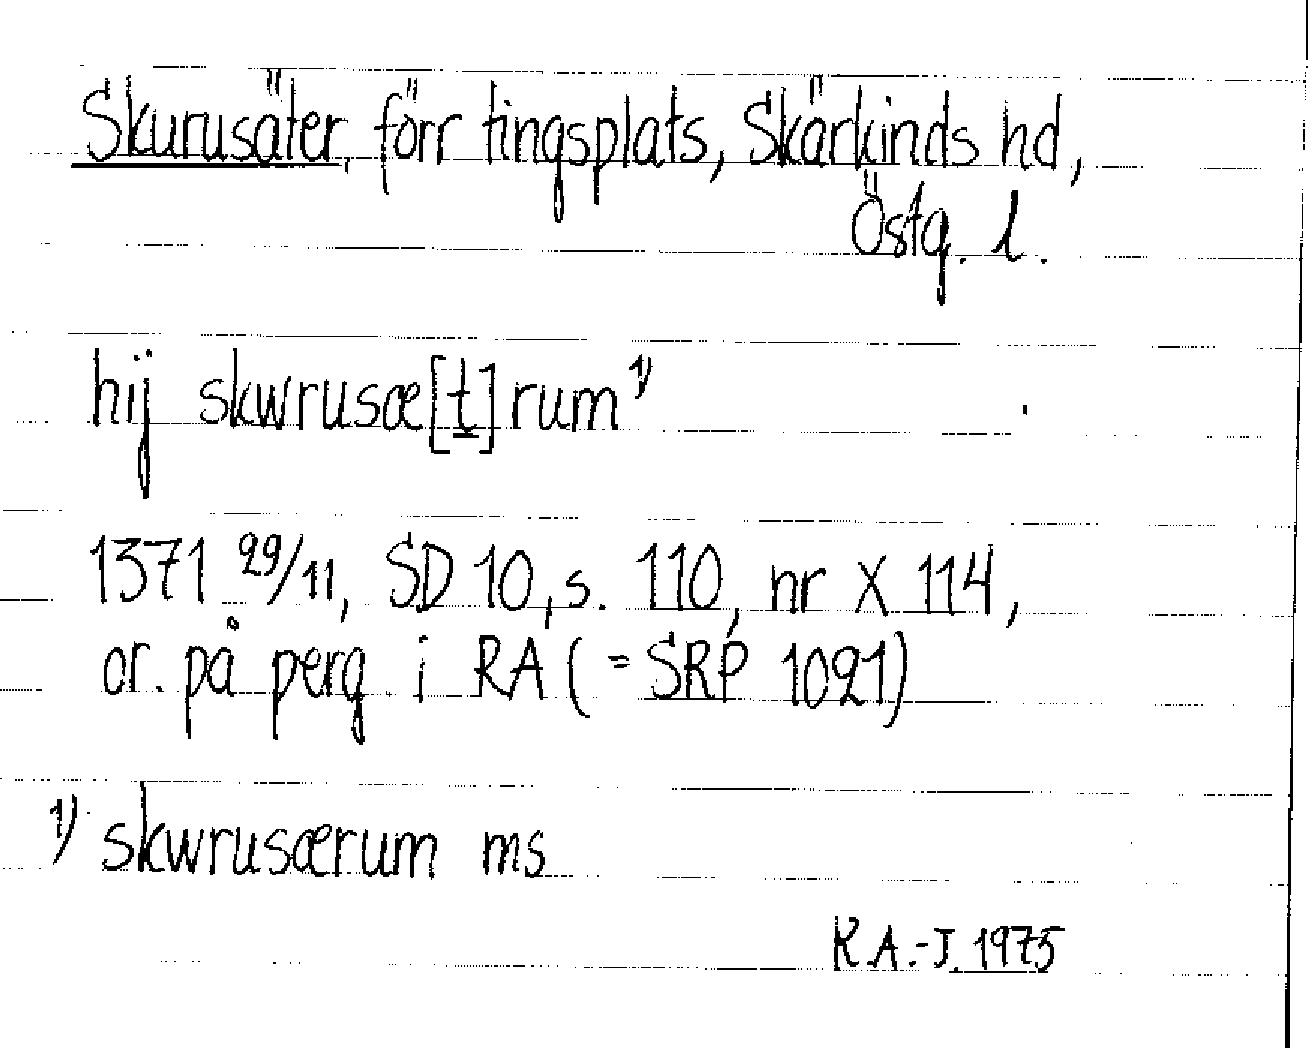 Skurusäter, förr tingsplats, Skärkinds hd,
Östg. l.
hij skwrusæ[t]rum 1)
1371 29/11, SD 10, s. 110, nr X 114,
or. på perg. i RA (= SRP 1021)
1) skwrusærum ms
K.A.-J. 1975